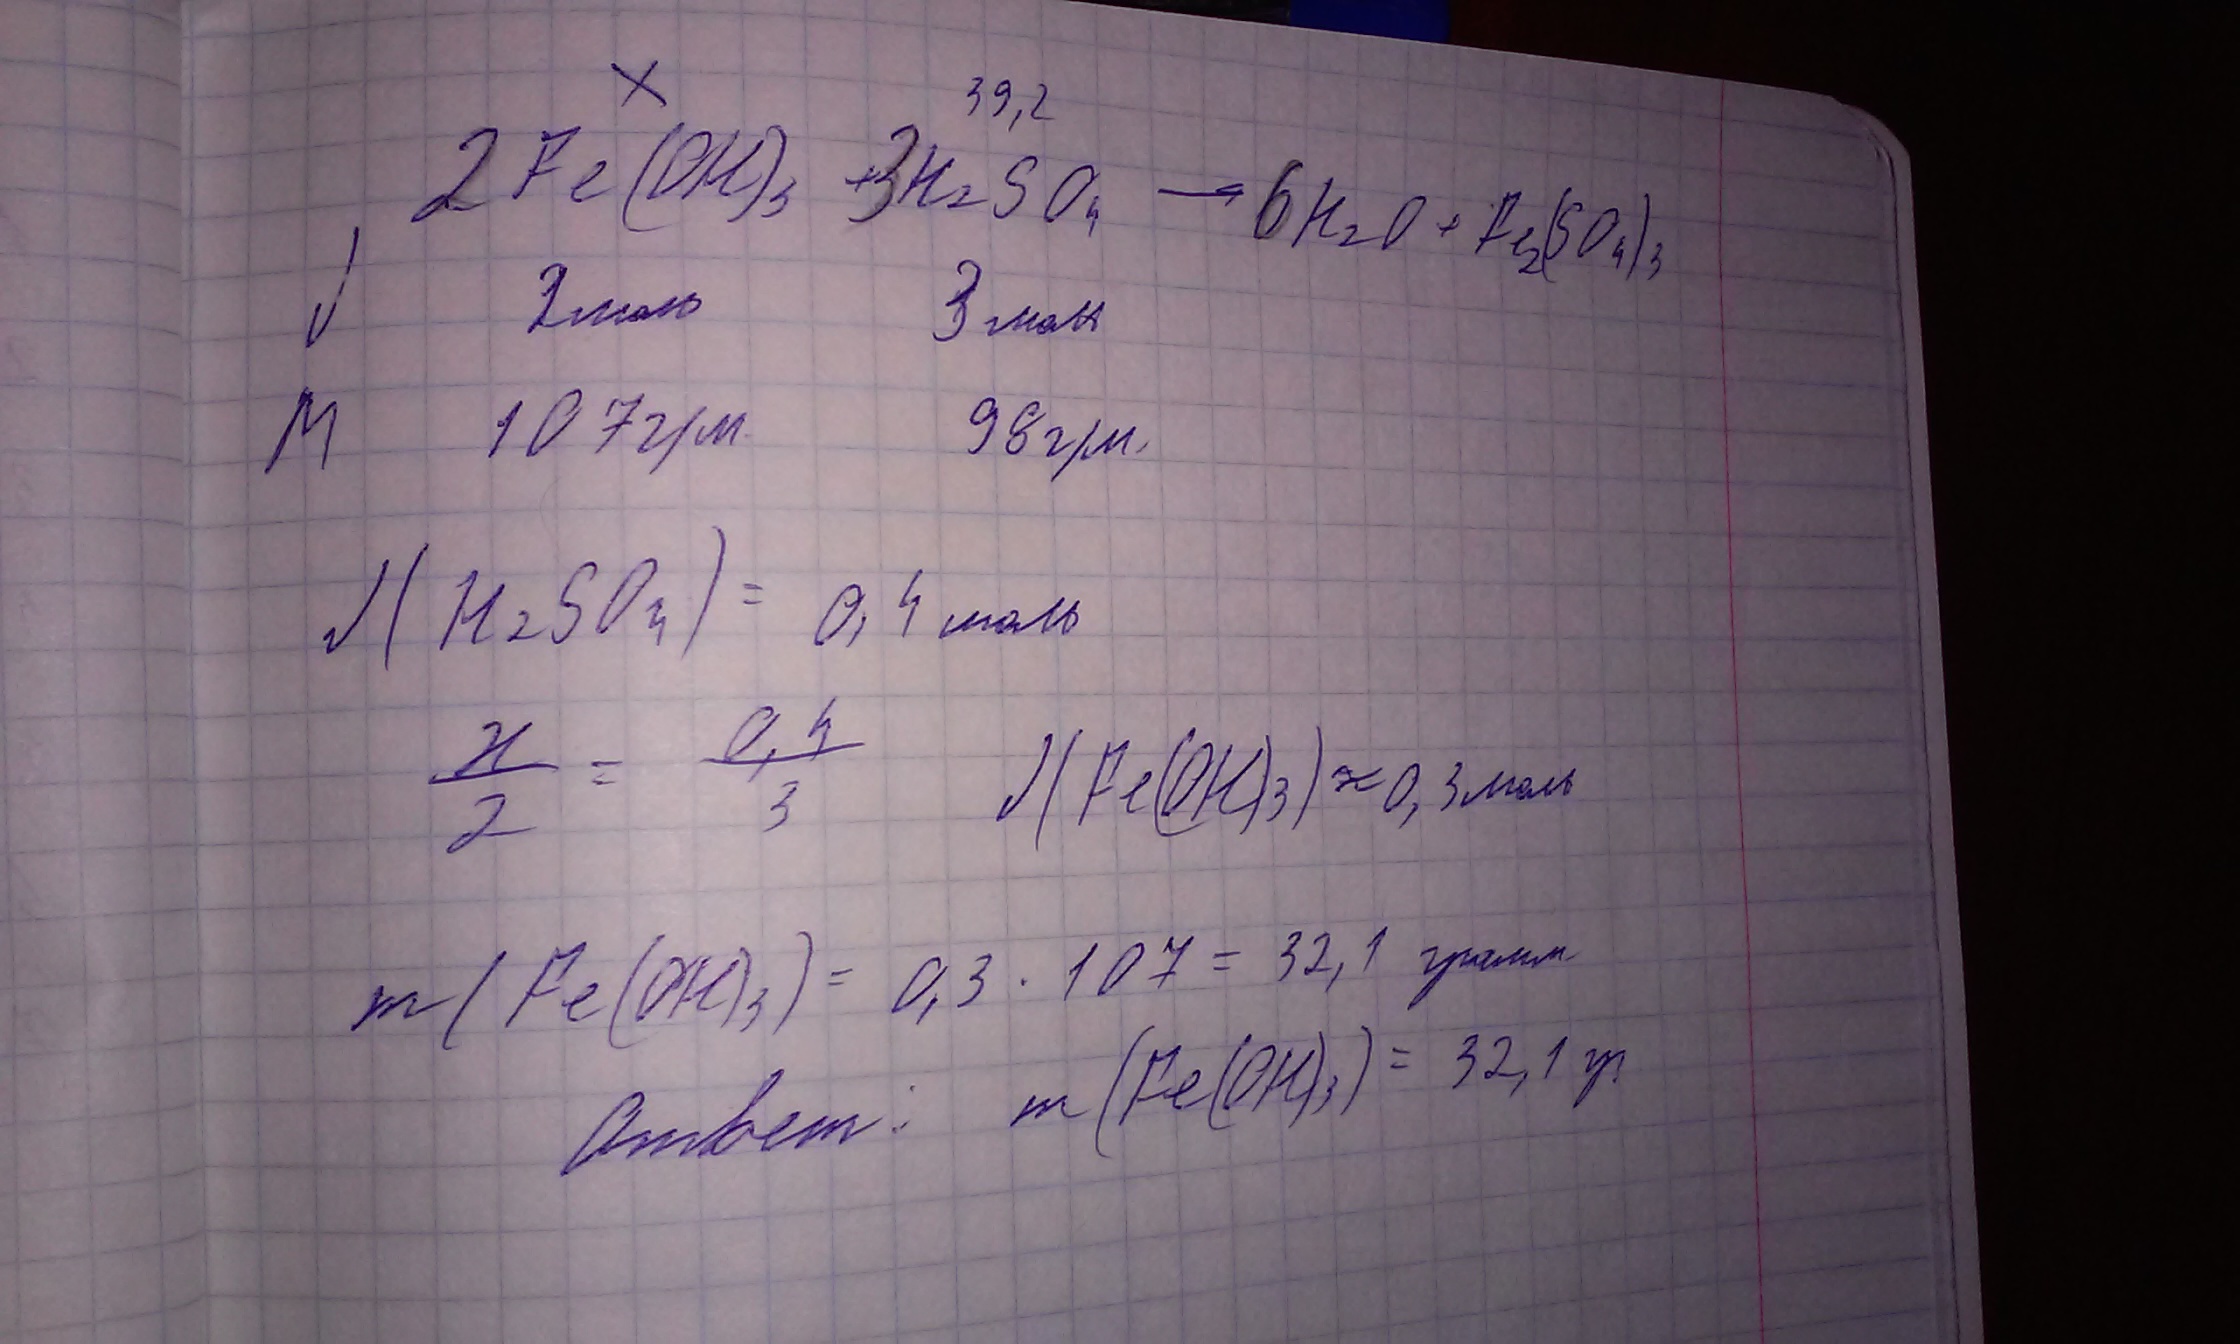 x 39,2
2Fe(OH)₃ + 3H₂SO₄ → 6H₂O + Fe₂(SO₄)₃
√ 2моль 3моль
M 107грм. 98грм.
√(H₂SO₄) = 0,4 моль
x/2 = 0,4/3 √(Fe(OH)₃) ≈ 0,3моль
m(Fe(OH)₃) = 0,3 · 107 = 32,1 грамм
Ответ: m(Fe(OH)₃) = 32,1 гр